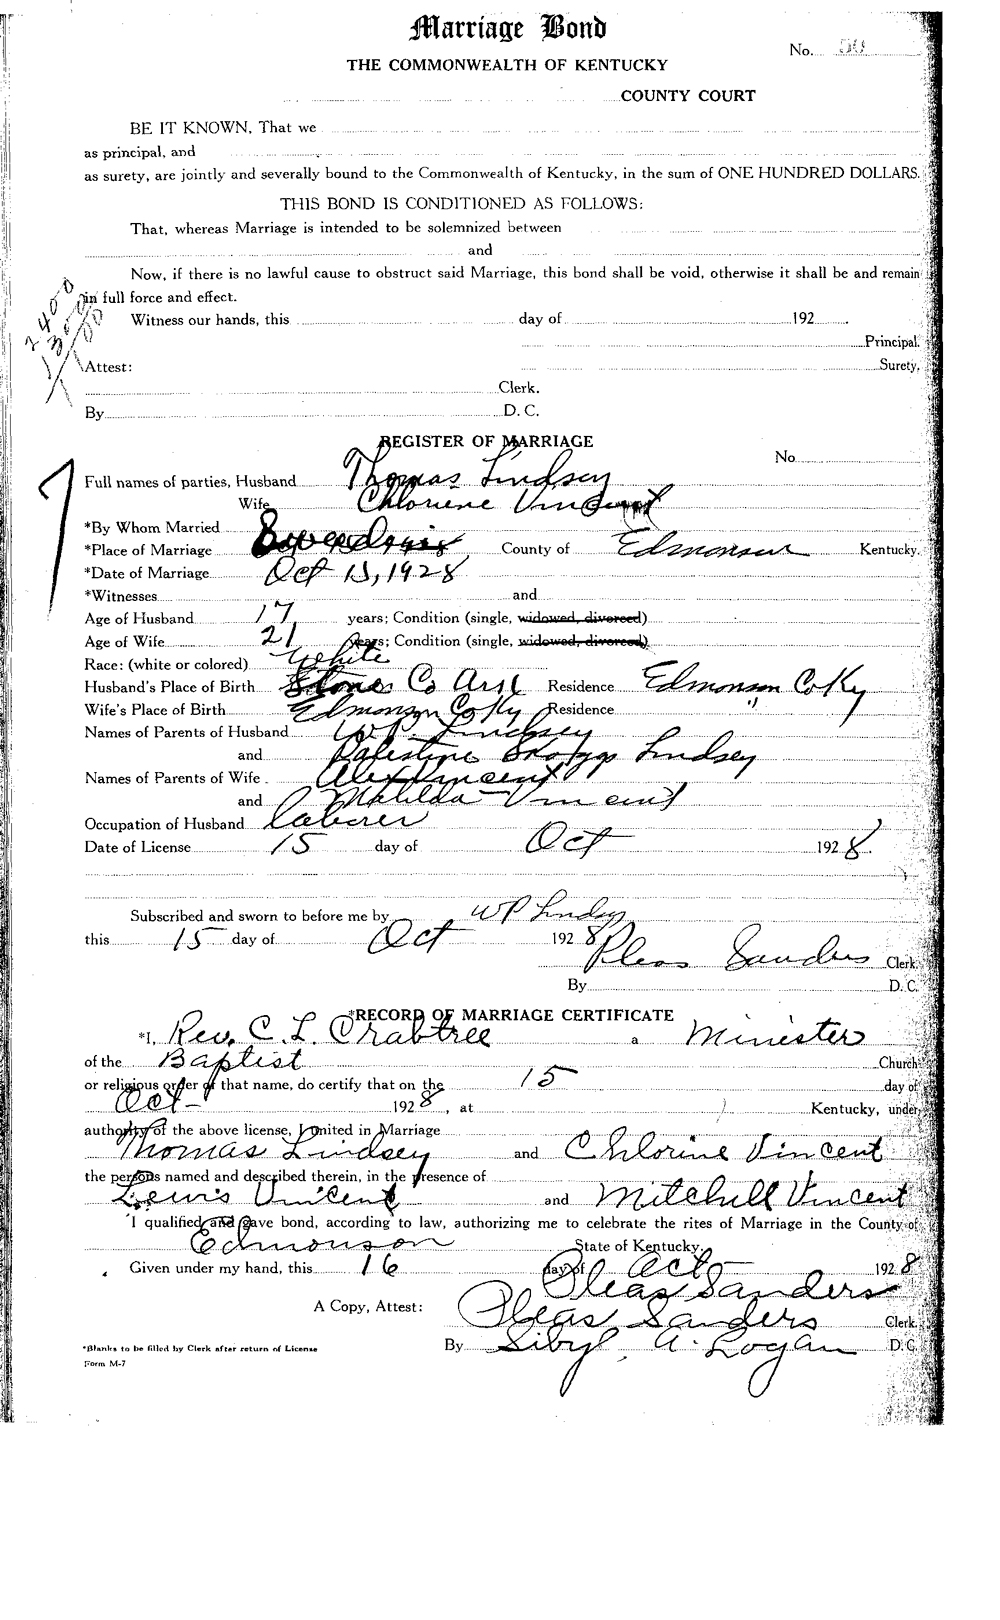 Marriage Bond
No. 50
THE COMMONWEALTH OF KENTUCKY
COUNTY COURT
BE IT KNOWN, That we
as principal, and
as surety, are jointly and severally bound to the Commonwealth of Kentucky, in the sum of ONE HUNDRED DOLLARS.
THIS BOND IS CONDITIONED AS FOLLOWS:
That, whereas Marriage is intended to be solemnized between
and
Now, if there is no lawful cause to obstruct said Marriage, this bond shall be void, otherwise it shall be and remain
in full force and effect.
Witness our hands, this day of 192
Principal.
Attest: Surety.
Clerk.
By D. C.
REGISTER OF MARRIAGE
No
Full names of parties, Husband Thomas Lindsey
Wife Chloriene Vincent
*By Whom Married
*Place of Marriage County of Edmonson Kentucky.
*Date of Marriage Oct 15, 1928
*Witnesses and
Age of Husband 17 years; Condition (single, widowed, divorced)
Age of Wife 21 years; Condition (single, widowed, divorced)
Race: (white or colored) White
Husband's Place of Birth Stone Co Ark Residence Edmonson Co Ky
Wife's Place of Birth Edmonson Co Ky Residence "
Names of Parents of Husband W.P. Lindsey
and Palestine Skaggs Lindsey
Names of Parents of Wife Alex Vincent
and Matilda Vincent
Occupation of Husband laborer
Date of License 15 day of Oct 1928.
Subscribed and sworn to before me by WP Lindsey
this 15 day of Oct 1928
Pleas Sanders Clerk
By D. C.
*RECORD OF MARRIAGE CERTIFICATE
*I, Rev. C. L. Crabtree a Minister
of the Baptist Church
or religious order of that name, do certify that on the 15 day of
Oct 1928, at Kentucky, under
authority of the above license, I united in Marriage
Thomas Lindsey and Chlorine Vincent
the persons named and described therein, in the presence of
Lewis Vincent and Mitchell Vincent
I qualified and gave bond, according to law, authorizing me to celebrate the rites of Marriage in the County of
Edmonson State of Kentucky.
Given under my hand, this 16 day of Oct 1928
Pleas Sanders
A Copy, Attest: Pleas Sanders Clerk.
By Sibyl A. Logan D.C.
*Blanks to be filled by Clerk after return of License
Form M-7